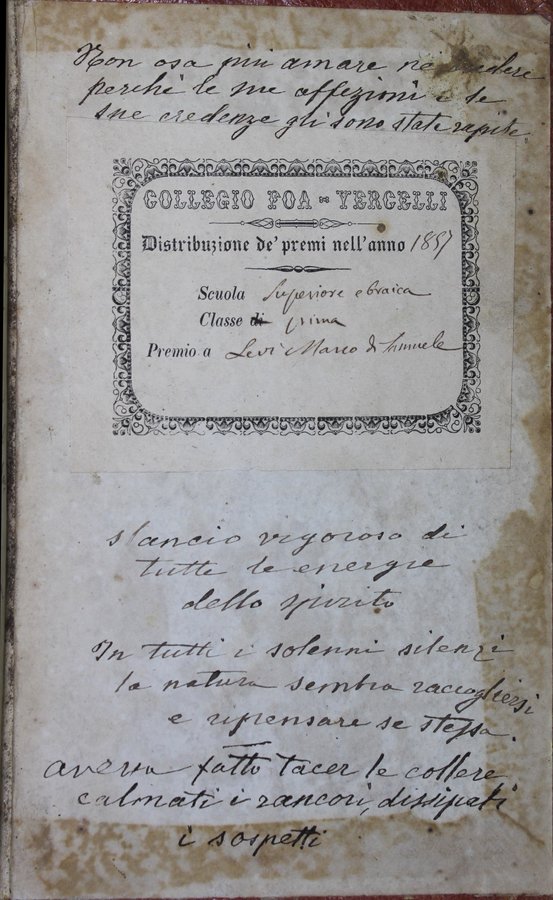 Non osa più amare nè credere
perchè le sue affezioni e le
sue credenze gli sono state rapite
COLLEGIO FOA - VERCELLI
Distribuzione de' premi nell'anno 1857
Scuola Superiore ebraica
Classe di prima
Premio a Levi Marco di Samuele
slancio vigoroso di
tutte le energie
dello spirito
In tutti i solenni silenzi
la natura sembra raccogliersi
e ripensare se stessa.
aveva fatto tacer le collere
calmati i rancori, dissipati
i sospetti